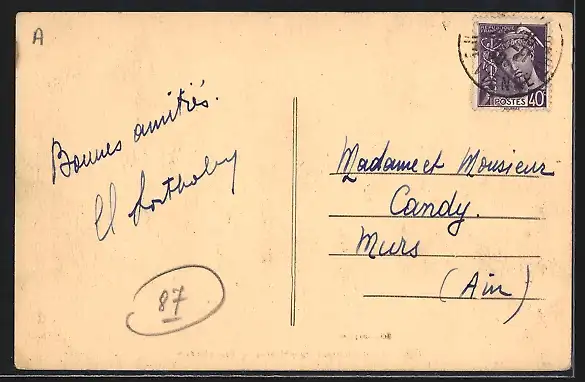 A
Bonnes amitiés.
87
REPUBLIQUE
FRANÇAISE
POSTES 40
Madame et Monsieur
Candy.
Murs
(Ain)